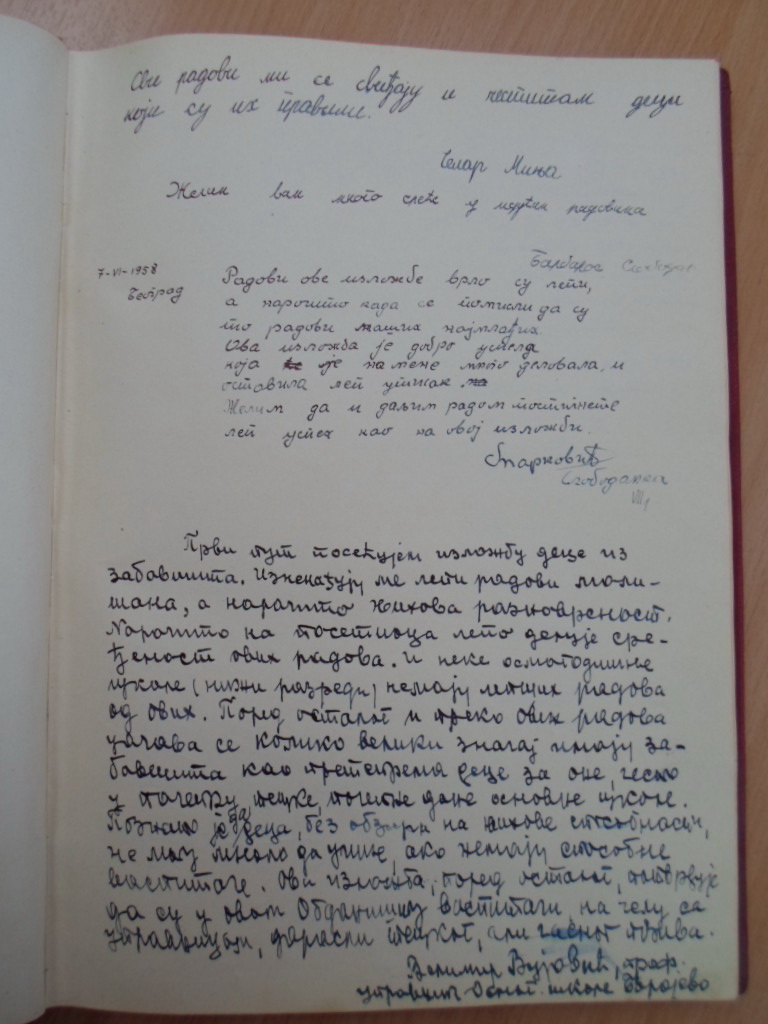 Сви радови ми се свиђају и честитам деци
који су их правили.
Челар Миња
Желим вам много среће у
7-VI-1958
Београд
Радови ове изложбе врло су лепи,
а нарочито када се помисли да су
то радови наших најмлађих.
Ова изложба је добро успела
која је на мене много деловала, и
оставила леп утисак
Желим да и даљим радом постигнете
леп успех као на овој изложби.
Слободанка
VIII₁
Први пут посећујем изложбу деце из
забавишта. Изненађују ме лепи радови мали-
шана, а нарочито њихова разноврсност.
Нарочито на посетиоца лепо делује сре-
ђеност ових радова. И неке осмогодишње
школе (нижи разреди) немају лепших радова
од ових. Поред осталог и преко ових радова
уочава се колико велики значај имају за-
бавишта као претспрема деце за оне, често
у почетку, тешке, почетне дане основне школе.
Познато је да деца, без обзира на њихове способности,
не могу много да уче, ако немају способне
васпитаче. Ова изложба, поред осталог, потврђује
да су у овом Обданишту васпитачи, на челу са
управницом, дорасли тешког, али часног позива.
Велимир Вујовић, проф.
управник Основ. школе Барајево